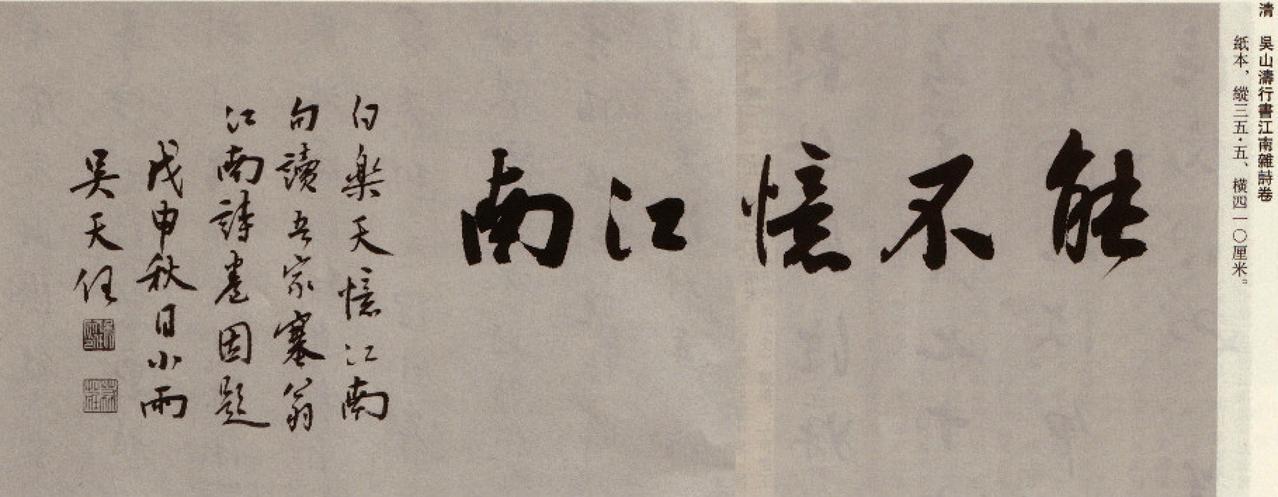 清 吳山濤行書江南雜詩卷
紙本，縱三五·五、橫四一〇厘米。
能不憶江南
白樂天憶江南
句讀吾家塞翁
江南詩卷因題
戊申秋日小雨
吳天任